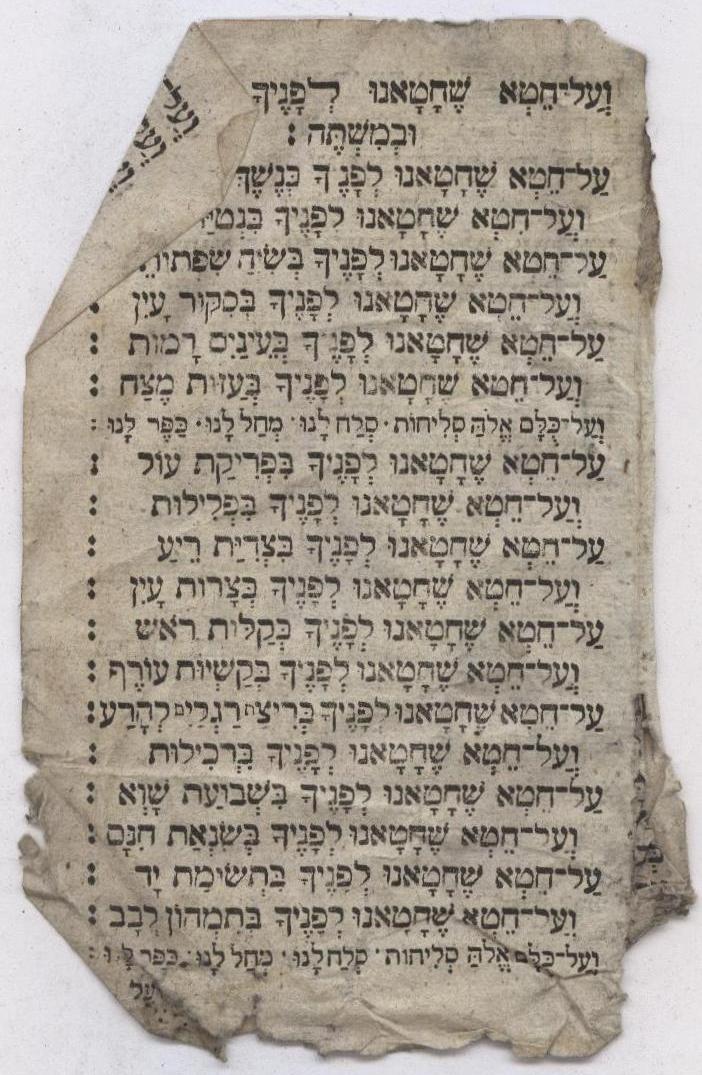 וְעַל־חֵטְא שֶׁחָטָאנוּ לְפָנֶיךָ
וּבְמִשְׁתֶּה :
עַל־חֵטְא שֶׁחָטָאנוּ לְפָנֶיךָ בְּנֶשֶׁךְ
וְעַל־חֵטְא שֶׁחָטָאנוּ לְפָנֶיךָ
עַל־חֵטְא שֶׁחָטָאנוּ לְפָנֶיךָ בְּשִׂיחַ
וְעַל־חֵטְא שֶׁחָטָאנוּ לְפָנֶיךָ בְּסִקּוּר עָיִן :
עַל־חֵטְא שֶׁחָטָאנוּ לְפָנֶיךָ בְּעֵינַיִם רָמוֹת :
וְעַל־חֵטְא שֶׁחָטָאנוּ לְפָנֶיךָ בְּעַזּוּת מֶצַח :
וְעַל־כֻּלָּם אֱלֹהַּ סְלִיחוֹת · סְלַח לָנוּ · מְחַל לָנוּ · כַּפֶּר לָנוּ :
עַל־חֵטְא שֶׁחָטָאנוּ לְפָנֶיךָ בִּפְרִיקַת עוֹל :
וְעַל־חֵטְא שֶׁחָטָאנוּ לְפָנֶיךָ בִּפְלִילוּת :
עַל־חֵטְא שֶׁחָטָאנוּ לְפָנֶיךָ בִּצְדִיַּת רֵיעַ :
וְעַל־חֵטְא שֶׁחָטָאנוּ לְפָנֶיךָ בְּצָרוּת עָיִן :
עַל־חֵטְא שֶׁחָטָאנוּ לְפָנֶיךָ בְּקַלּוּת רֹאשׁ :
וְעַל־חֵטְא שֶׁחָטָאנוּ לְפָנֶיךָ בְּקַשְׁיוּת עוֹרֶף :
עַל־חֵטְא שֶׁחָטָאנוּ לְפָנֶיךָ בְּרִיצַת רַגְלַיִם לְהָרַע :
וְעַל־חֵטְא שֶׁחָטָאנוּ לְפָנֶיךָ בִּרְכִילוּת :
עַל־חֵטְא שֶׁחָטָאנוּ לְפָנֶיךָ בִּשְׁבוּעַת שָׁוְא :
וְעַל־חֵטְא שֶׁחָטָאנוּ לְפָנֶיךָ בְּשִׂנְאַת חִנָּם :
עַל־חֵטְא שֶׁחָטָאנוּ לְפָנֶיךָ בִּתְשׂוּמֶת יָד :
וְעַל־חֵטְא שֶׁחָטָאנוּ לְפָנֶיךָ בְּתִמְהוֹן לֵבָב :
וְעַל־כֻּלָּם אֱלֹהַּ סְלִיחוֹת · סְלַח לָנוּ · מְחַל לָנוּ · כַּפֶּר לָנוּ :
עַל